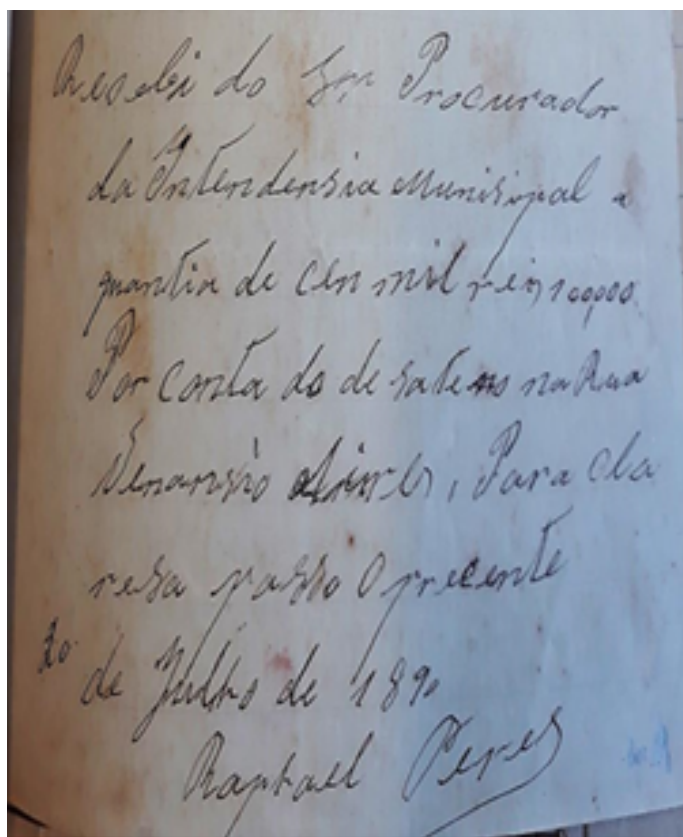 Resebi do Snr Procurador
da Intendensia Munisipal a
quantia de cen mil reis 100000
Por conta do desaterro na Rua
Venansio Aires, Para cla
resa passo O precente
20 de Julho de 1890
Raphael Peres